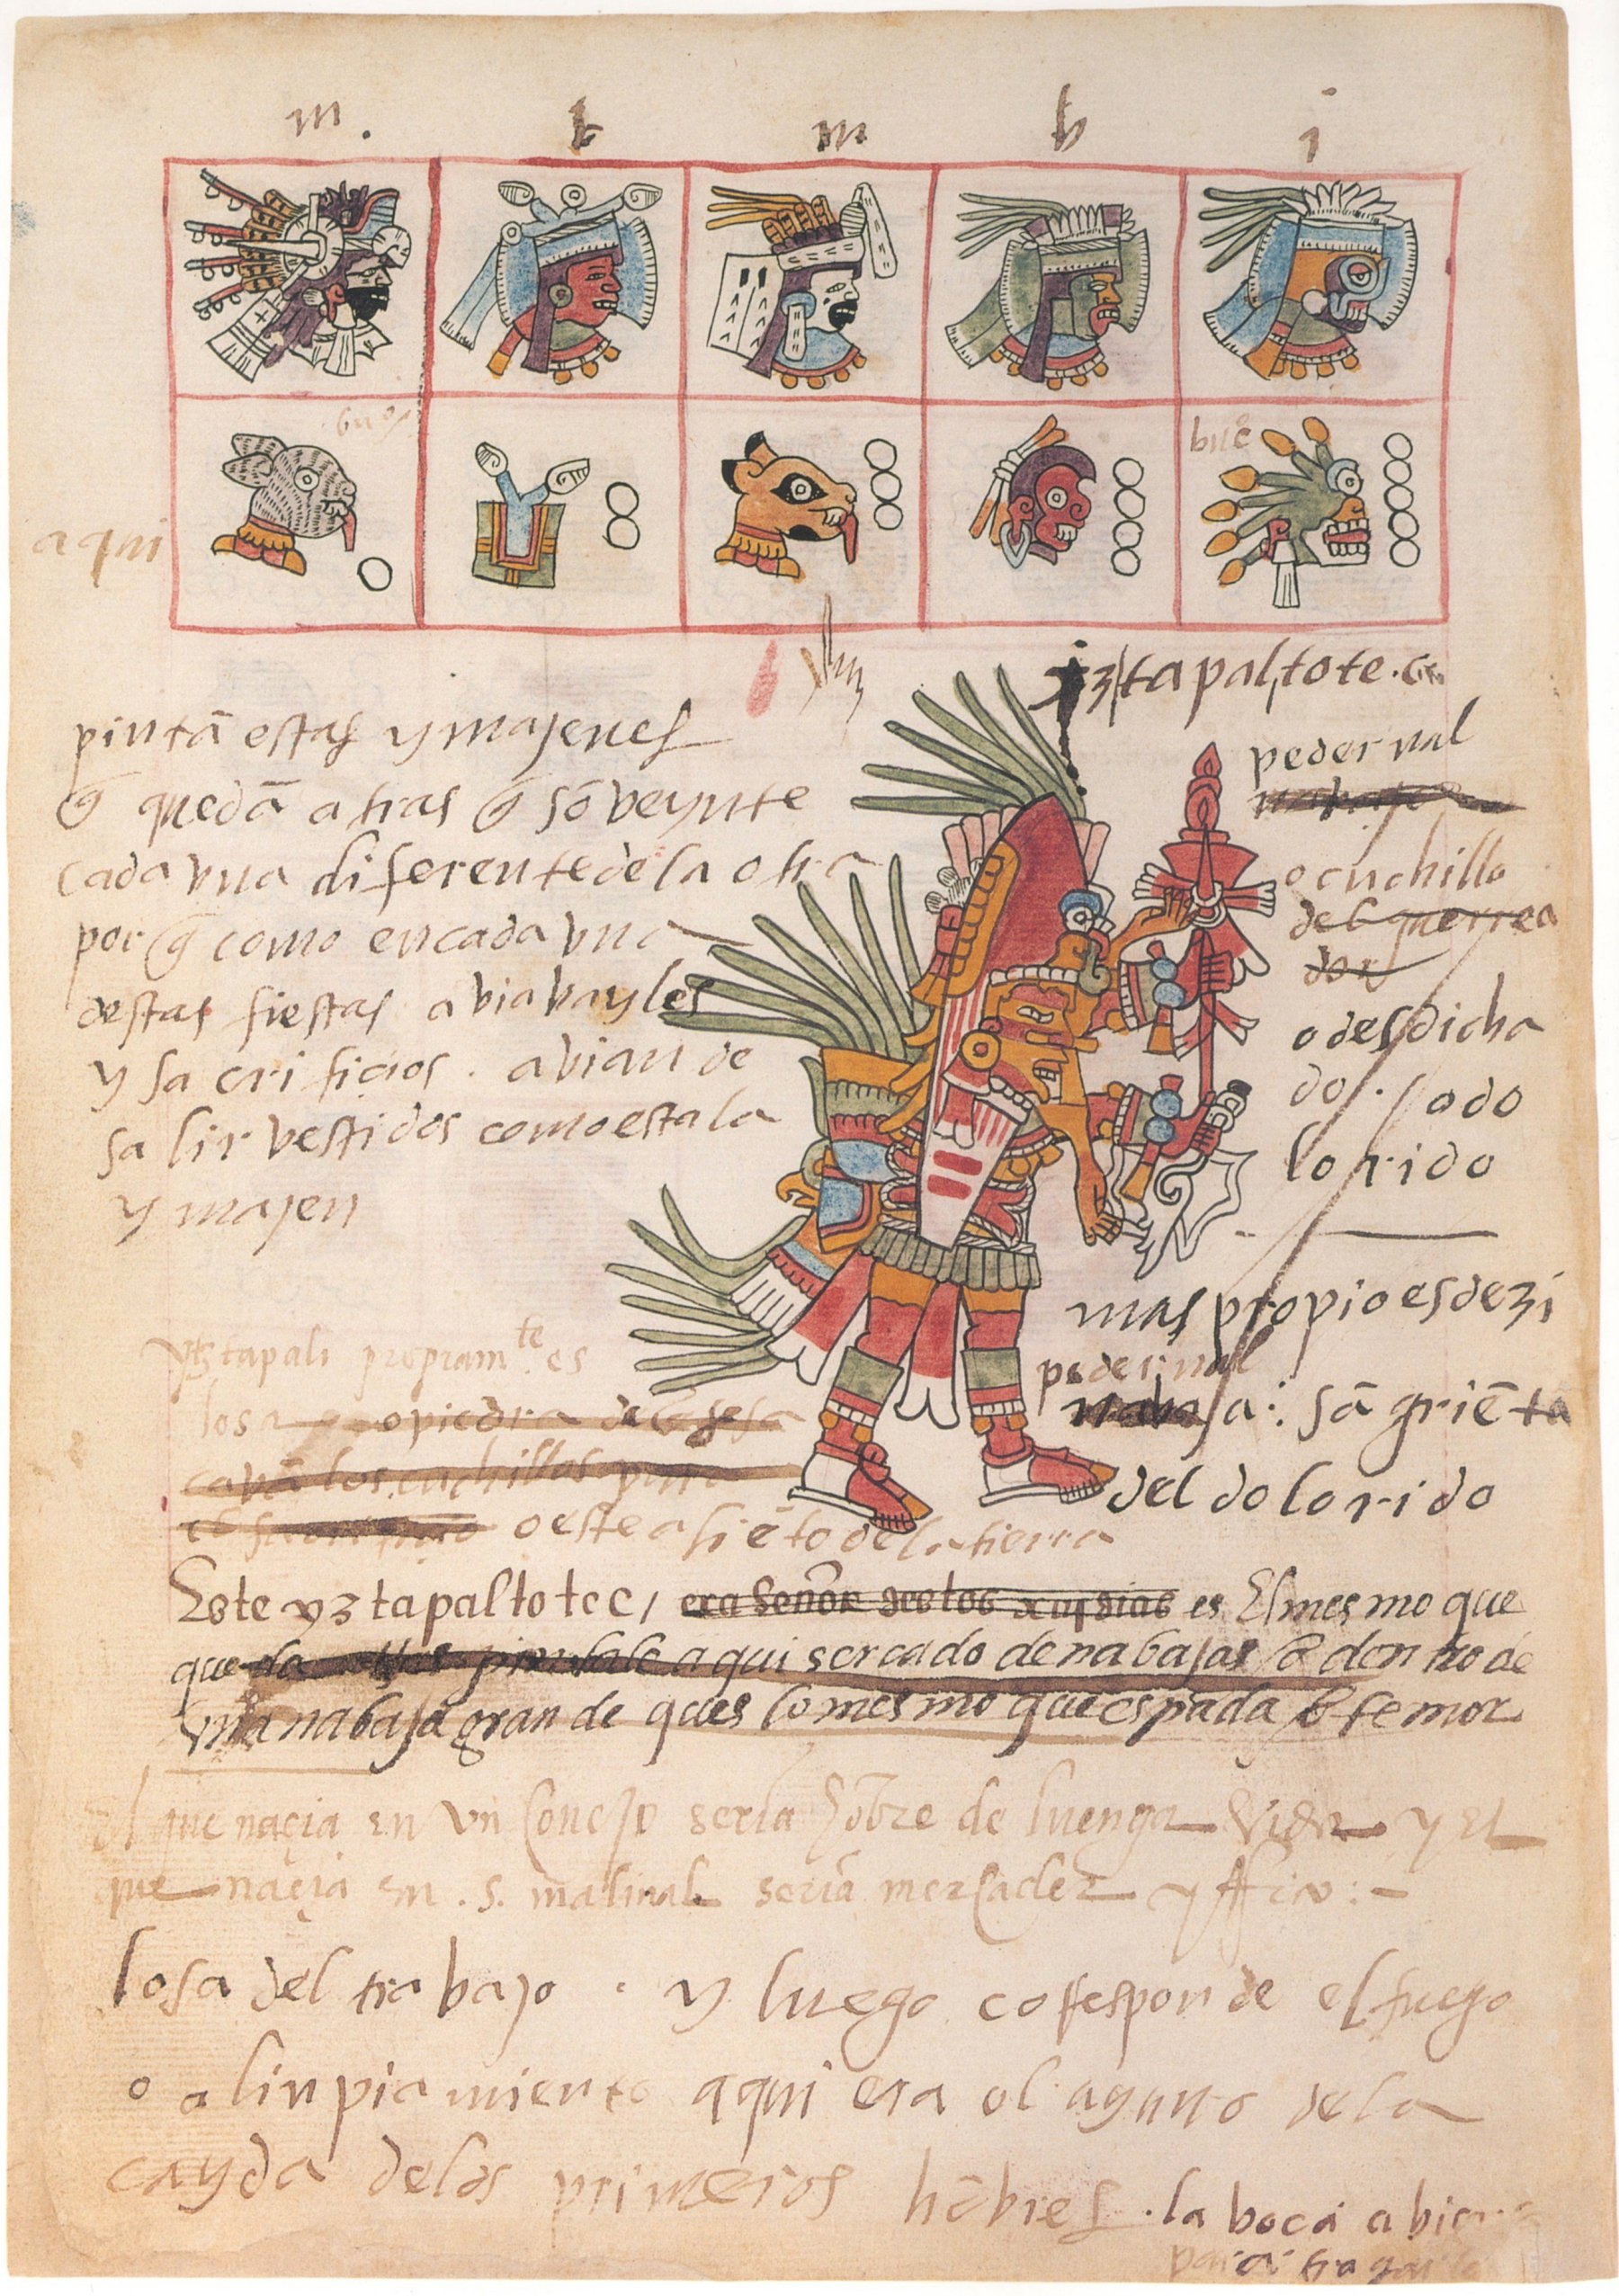 m. t m b i
bue
aqui
yztapaltotec
pintā estas ymajenes
q̄ quedā atras q̄ sō veynte
cada vna diferente de la otra
por q̄ como en cada vna
destas fiestas abia bayles
y sacrificios . abian de
salir vestidos como esta la
ymajen
pedernal
o cuchillo
del guerrea
dor
o desdicha
do . lo do
lorido
mas propio es dezi
pedernal
nabaja : sā griēta
del dolorido
yztapali propriamte es
losa o piedra
cavā los cuchillos
o este asiēto de la tierra
Este yztapaltotec, era señor destos xiij dias es El mesmo que
queda atras pintale aqui sercado de nabajas o dentro de
vna nabaja grande ques lo mesmo que espada o temor
El que naçia en vn Conejo seria hōbre de luenga vida y el
que naçia en .5. malinal seria mercader
losa del trabajo . y luego coresponde el fuego
o alinpiamiento aqui era el ayuno de la
cayda de los primeros hōbres . la boca abier
para traga